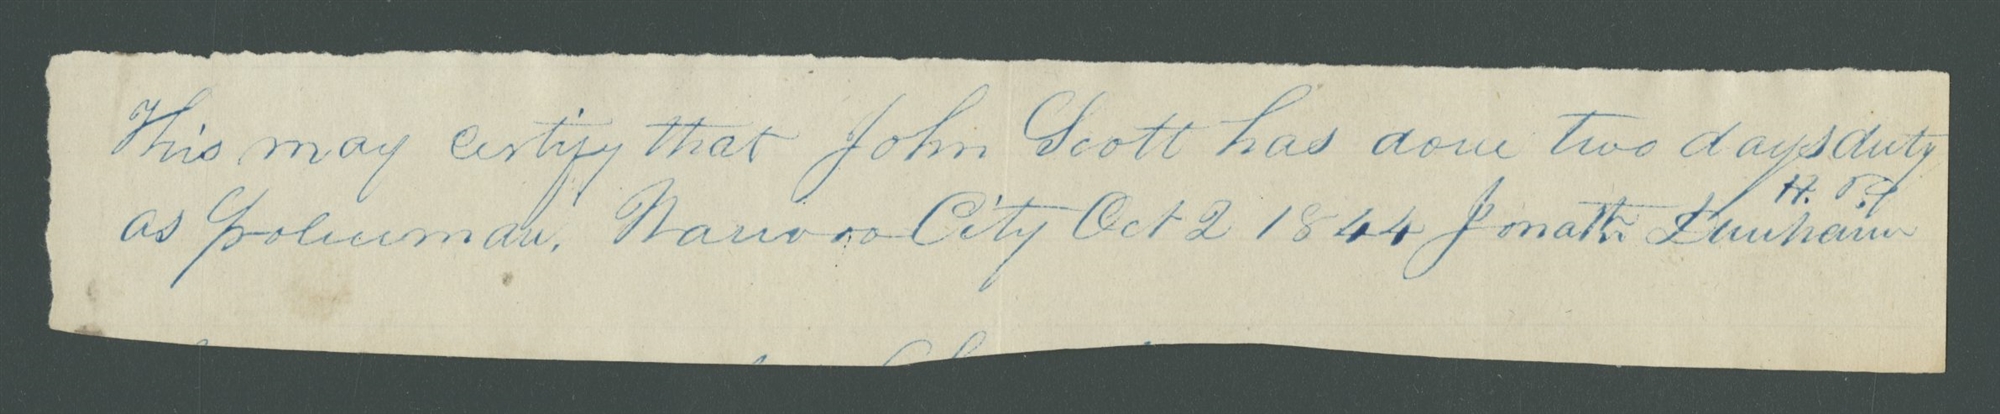 This may certify that John Scott has done two days duty
as policeman. Nauvoo City Oct 2 1844 Jonath Dunham
H. P.